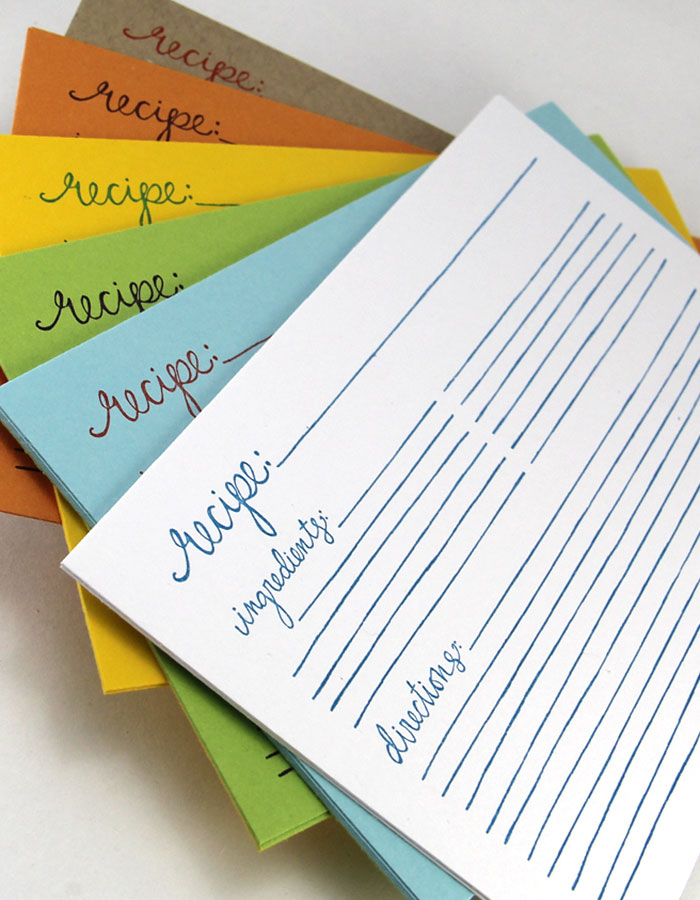 recipe:
recipe:
recipe:
recipe:
recipe:
recipe:
ingredients:
directions: